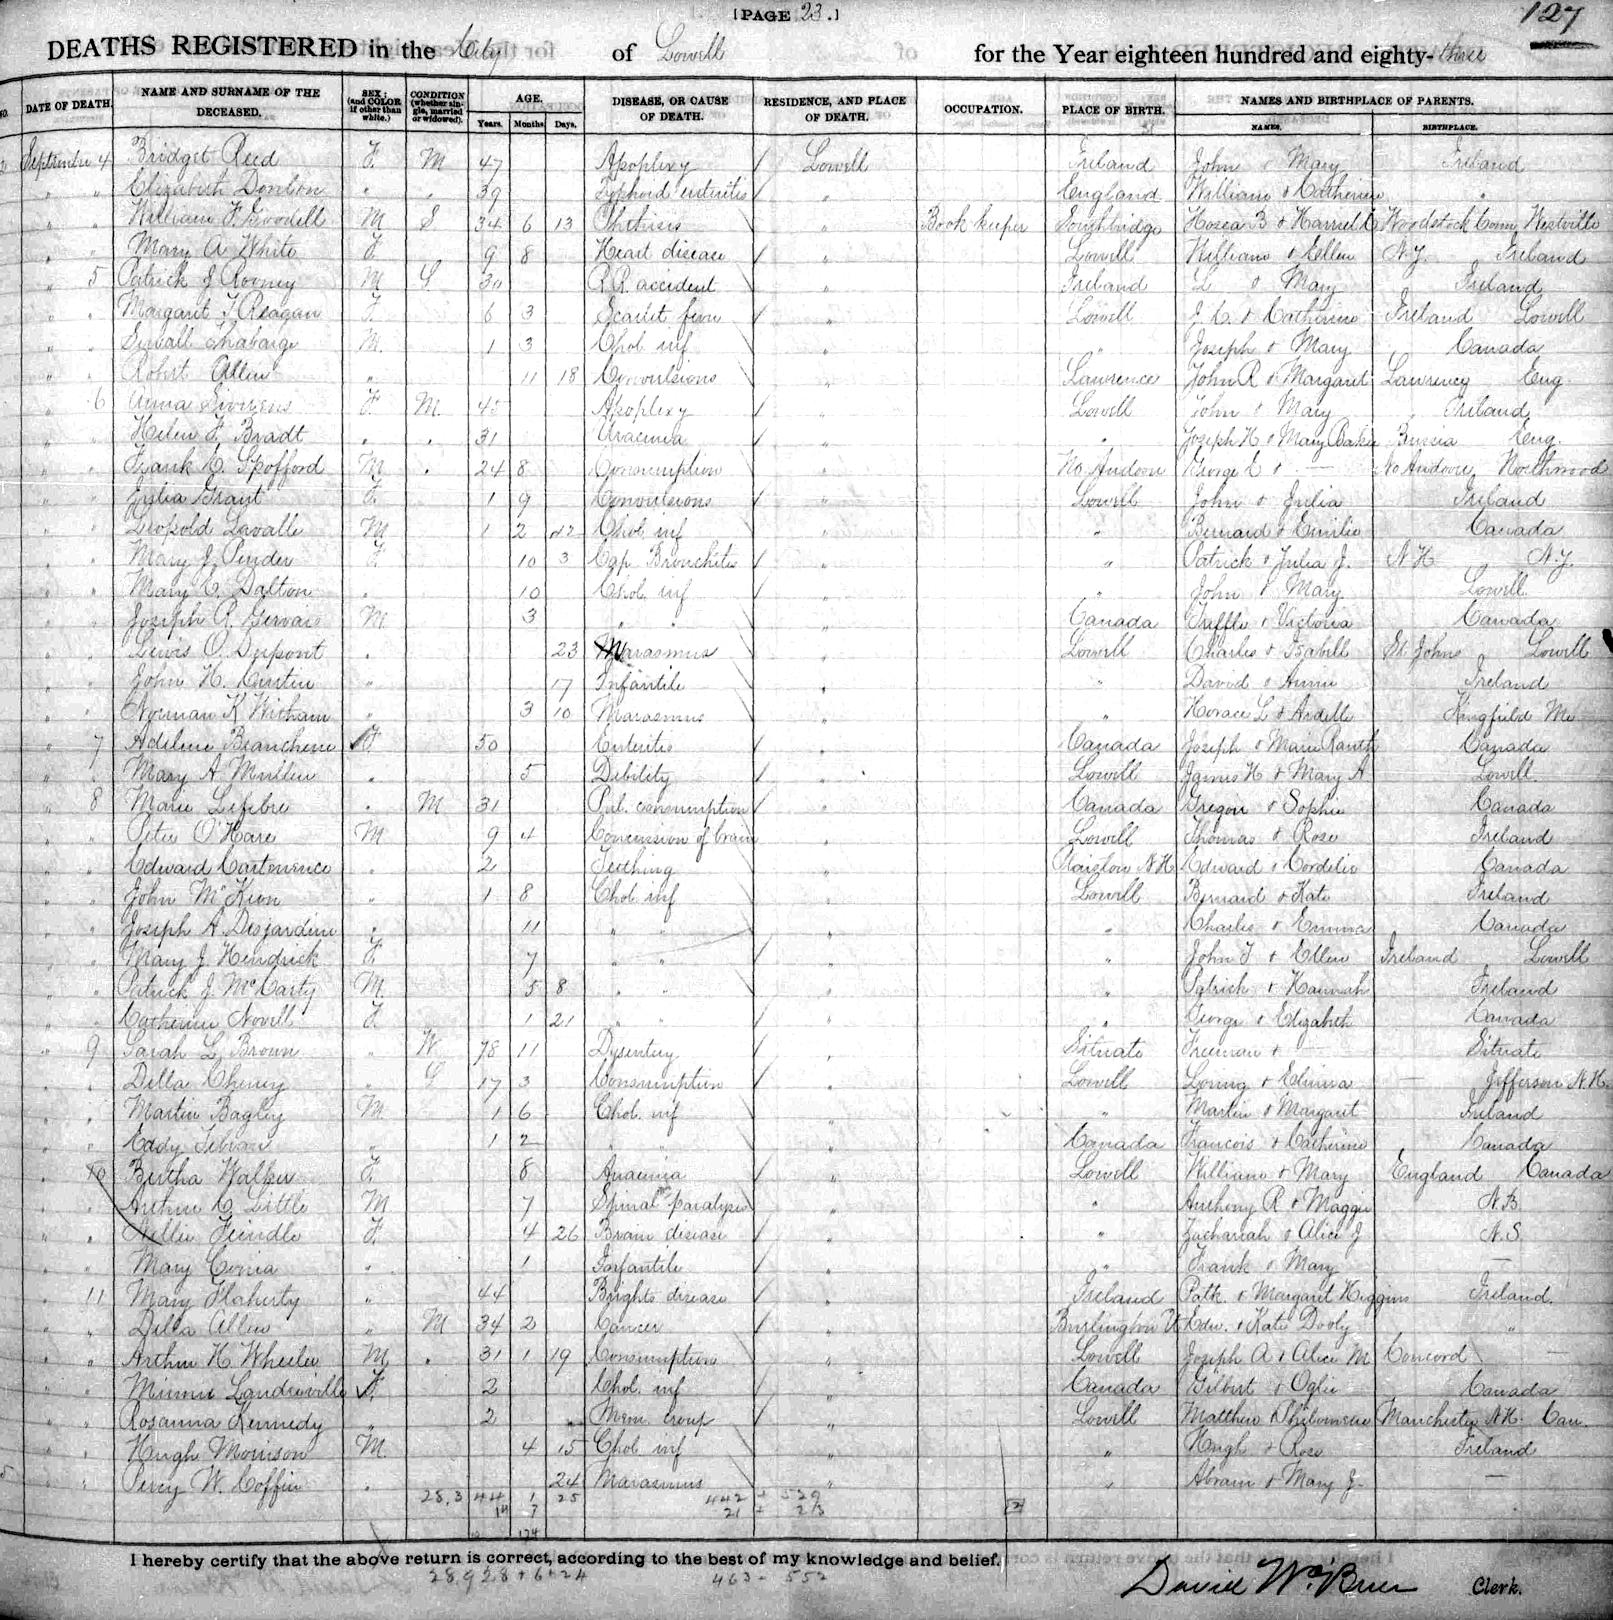 [PAGE 23.]
127
DEATHS REGISTERED in the City of Lowell for the Year eighteen hundred and eighty-three
NO. DATE OF DEATH. NAME AND SURNAME OF THE DECEASED. SEX; (and COLOR if other than white.) CONDITION (whether single, married or widowed). AGE. Years. Months. Days. DISEASE, OR CAUSE OF DEATH. RESIDENCE, AND PLACE OF DEATH. OCCUPATION. PLACE OF BIRTH. NAMES AND BIRTHPLACE OF PARENTS. NAMES. BIRTHPLACE.
September 4 Bridget Reed F. M 47 Apoplexy / Lowell Ireland John & Mary Ireland
" " Elizabeth Donlon " " 39 Typhoid enteritis / " England William & Catherine "
" " William F. Goodell M S 34 6 13 Phthisis " Book keeper Southbridge Hosea B & Harriet Woodstock Conn Westville
" " Mary A White F. 9 8 Heart disease / " Lowell William & Ellen N.Y. Ireland
" 5 Patrick J Rooney M S 30 R.R. accident " Ireland & Mary Ireland
" " Margaret T Reagan F. 6 3 Scarlet fever " Lowell J C. & Catherine Ireland Lowell
" " M. 1 3 Chol. inf " " Joseph & Mary Canada
" " Robert Allen " 11 18 Convulsions " Lawrence John R & Margaret Lawrence Eng.
" 6 Anna F. M. 45 Apoplexy / " Lowell John & Mary Ireland
" " Helen F. Bradt " " 31 Uraemia / " " Joseph H & Mary Baker Russia Eng.
" " Frank C. Spofford M " 24 8 Consumption / " No Andover George L & — No Andover Northwood
" " Julia Grant F. 1 9 Convulsions / " Lowell John & Julia Ireland
" " Leopold Lavalle M 1 2 22 Chol. inf " " Bernard & Emilie Canada
" " Mary J. Pinder F. 10 3 Cap. Bronchitis / " " Patrick & Julia J. N.H N.Y.
" " Mary C. Dalton " 10 Chol. inf " " John & Mary Lowell
" " Joseph A. Gervais M 3 " " " Canada Treffle & Victoria Canada
" " Lewis O. Dupont " 23 Marasmus " Lowell Charles & Isabell St Johns Lowell
" " John H. " 17 Infantile " " David & Annie Ireland
" " Norman K Witham " 3 10 Marasmus " " Horace L & Ardelle Kingfield Me
" 7 Adeline F. 50 Enteritis / " Canada Joseph & Marie Canada
" " Mary A Mullen " 5 Debility / " Lowell James H & Mary A Lowell
" 8 Marie Lefibre " M 31 Pul. consumption / " Canada Gregori & Sophie Canada
" " Peter O'Hare M 9 4 Concussion of brain " Lowell Thomas & Rose Ireland
" " Edward " 2 Teething " Plaistow N.H. Edward & Cordelie Canada
" " John McKeon " 1 8 Chol. inf " Lowell Bernard & Kate Ireland
" " Joseph A. Desjardins " 11 " " " " Charles & Emma Canada
" " Mary J Hendrick F. 7 " " / " " John T & Ellen Ireland Lowell
" " Patrick J. McCarty M 5 8 " " " " Patrick & Hannah Ireland
" " Catherine Novell F. 1 21 " " / " " George & Elizabeth Canada
" 9 Sarah L. Brown " W 78 11 Dysentery / " Situate Freeman & — Situate
" " Della Cheney " S 17 3 Consumption / " Lowell Loring & Elmira — Jefferson N.H.
" " Martin Bagley M 1 6 Chol. inf " " Martin & Margaret Ireland
" " " 1 2 " " Canada Francois & Catherine Canada
" 10 Bertha Walker F. 8 Anaemia / " Lowell William & Mary England Canada
" " Arthur C. Little M 7 Spinal paralysis " " Anthony R & Maggie N.B.
" " Nellie Feindle F. 4 26 Brain disease / " " Zachariah & Alice J N.S.
" " Mary " 1 Infantile / " " Frank & Mary —
" 11 Mary Flaherty " 44 Brights disease / " Ireland Patk. & Margaret Higgins Ireland.
" " Della Allen " M 34 2 Cancer / " Burlington Vt Edw. & Kate Dooly "
" " Arthur H. Wheeler M. " 31 1 19 Consumption " Lowell Joseph A & Alice M Concord —
" " Minnie Landreville F. 2 Chol. inf / " Canada Gilbert & Canada
" " Rosanna Kennedy " 2 Mem. croup / " Lowell Matthew & Manchester N.H. Can.
" " Hugh Morrison M. 4 15 Chol. inf " " Hugh & Rose Ireland
" " Percy W. Coffin " 24 Marasmus " " Abram & Mary J. —
28.3 44 1 25 442 + 529
14 7 21 + 23
124
I hereby certify that the above return is correct, according to the best of my knowledge and belief.
28.9 28 + 6 + 24 463 - 552
David Clerk.